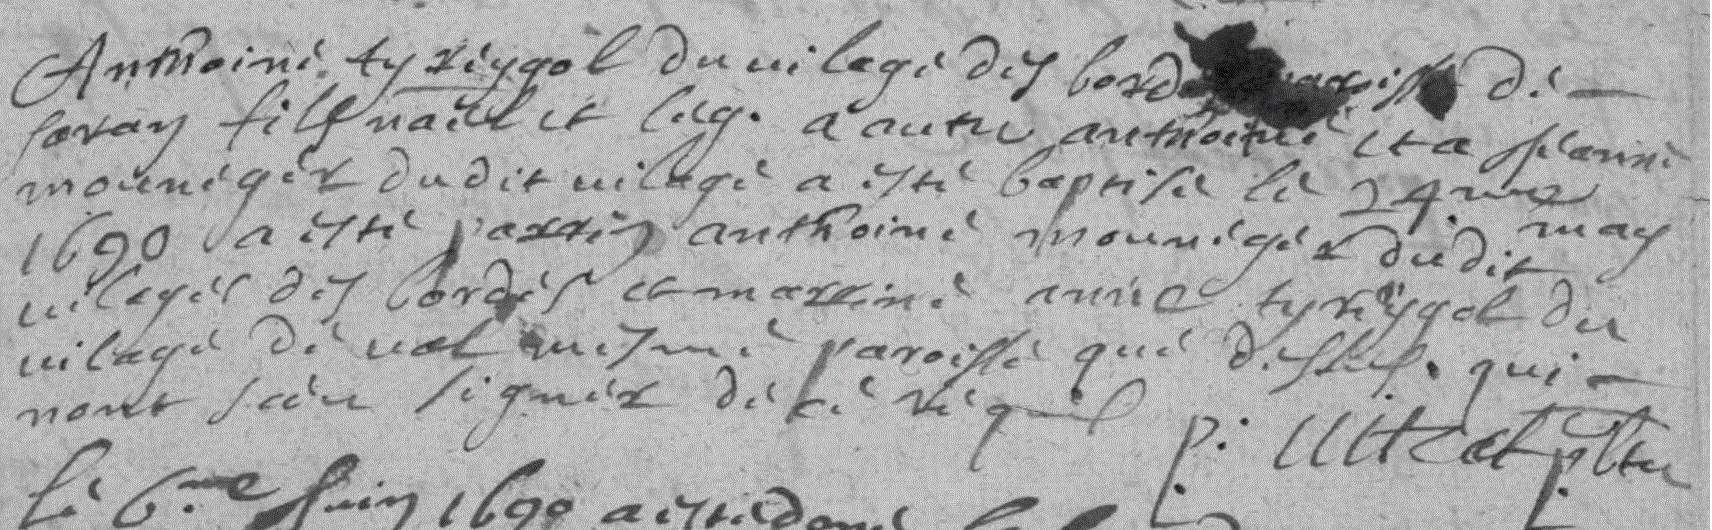 Anthoine tyssygol du uilage des bordes paroisse de
saran fils nael et leg. a autre anthoine et a jeanne
mouneger dudit uilage a esté baptisé le 24me may
1690 a esté parrin anthoine mouneger dudit
uilages des bordes et marrine anne tyrygol du
uilage de ual mesme paroisse que dessus. qui
nont sceu signer de ce req
Le 6.me Juin 1690 a esté donné